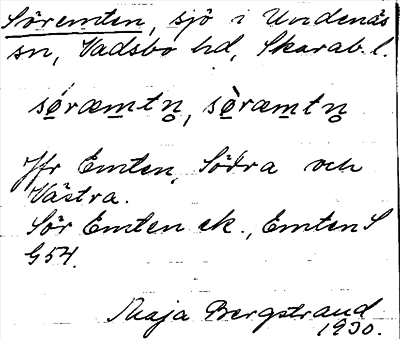 Söremten, sjö i Undenäs
sn, Vadsbo hd, Skarab. l.
sǿræmtn̥, sø̀ræmtn̥
Jfr Emten, Södra och
Västra.
Sör Emten ek., Emten S
G54.
Maja Bergstrand
1930.